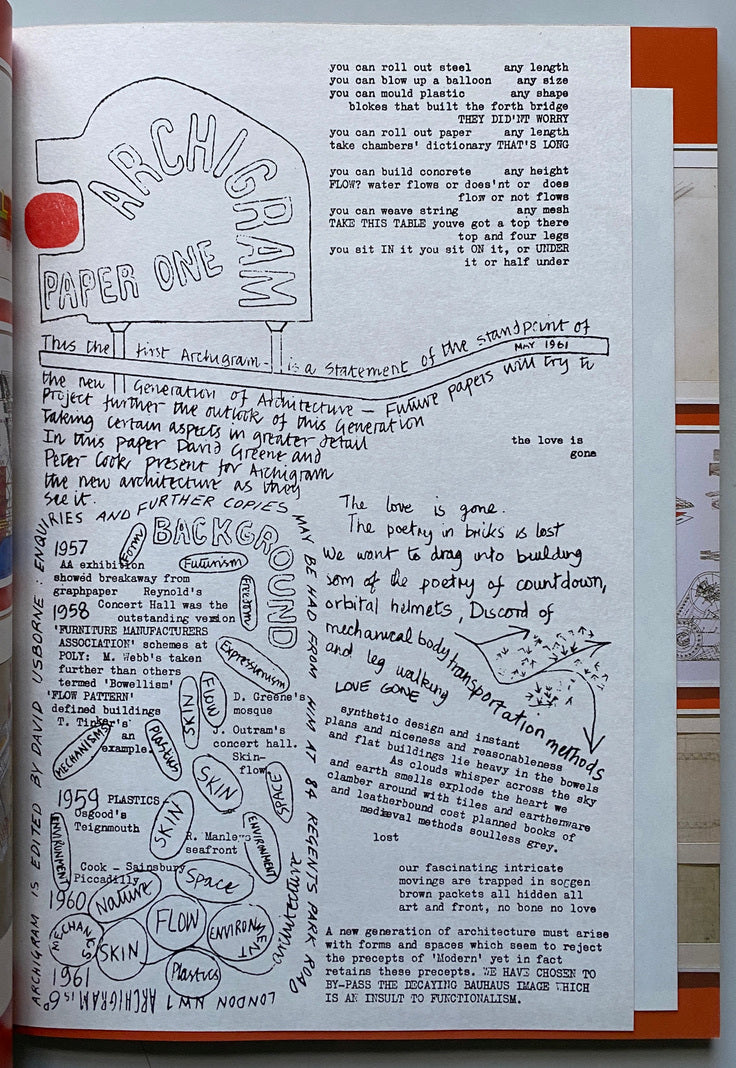 ARCHIGRAM
PAPER ONE
you can roll out steel any length
you can blow up a balloon any size
you can mould plastic any shape
blokes that built the forth bridge
THEY DID'NT WORRY
you can roll out paper any length
take chambers' dictionary THAT'S LONG
you can build concrete any height
FLOW? water flows or does'nt or does
flow or not flows
you can weave string any mesh
TAKE THIS TABLE youve got a top there
top and four legs
you sit IN it you sit ON it, or UNDER
it or half under
This the first Archigram - is a statement of the standpoint of
MAY 1961
the new Generation of Architecture — Future papers will try to
Project further the outlook of this Generation
Taking certain aspects in greater detail
In this paper David Greene and
Peter Cook present for Archigram
the new architecture as they
see it.
the love is
gone
ARCHIGRAM IS EDITED BY DAVID USBORNE : ENQUIRIES AND FURTHER COPIES MAY BE HAD FROM HIM AT 84 REGENTS PARK ROAD
LONDON NW1
ARCHIGRAM is 6d
BACKGROUND
Form
1957
AA exhibition
Futurism
showed breakaway from
graphpaper Reynold's
Freedom
1958 Concert Hall was the
outstanding version
'FURNITURE MANUFACTURERS
ASSOCIATION' schemes at
POLY: M. Webb's taken
further than others
Expressionism
termed 'Bowellism'
'FLOW PATTERN'
defined buildings
SKIN
FLOW
D. Greene's
mosque
T. Tinker's
an
example.
MECHANISMS
Plastics
J. Outram's
concert hall.
Skin-
flow
SKIN
SPACE
1959 PLASTICS-
Osgood's
Teignmouth
SKIN
R. Manlers
seafront
ENVIRONMENT
ENVIRONMENT
Cook - Sainsbury
Piccadilly
Space
architecture
1960
Nature
FLOW
ENVIRONMENT
MECHANICS
SKIN
Plastics
1961
The love is gone.
The poetry in bricks is lost
We want to drag into building
som of the poetry of countdown,
orbital helmets, Discord of
mechanical body transportation methods
and leg walking
LOVE GONE
synthetic design and instant
plans and niceness and reasonableness
and flat buildings lie heavy in the bowels
As clouds whisper across the sky
and earth smells explode the heart we
clamber around with tiles and earthenware
and leatherbound cost planned books of
mediæval methods soulless grey.
lost
our fascinating intricate
movings are trapped in soggen
brown packets all hidden all
art and front, no bone no love
A new generation of architecture must arise
with forms and spaces which seem to reject
the precepts of 'Modern' yet in fact
retains these precepts. WE HAVE CHOSEN TO
BY-PASS THE DECAYING BAUHAUS IMAGE WHICH
IS AN INSULT TO FUNCTIONALISM.